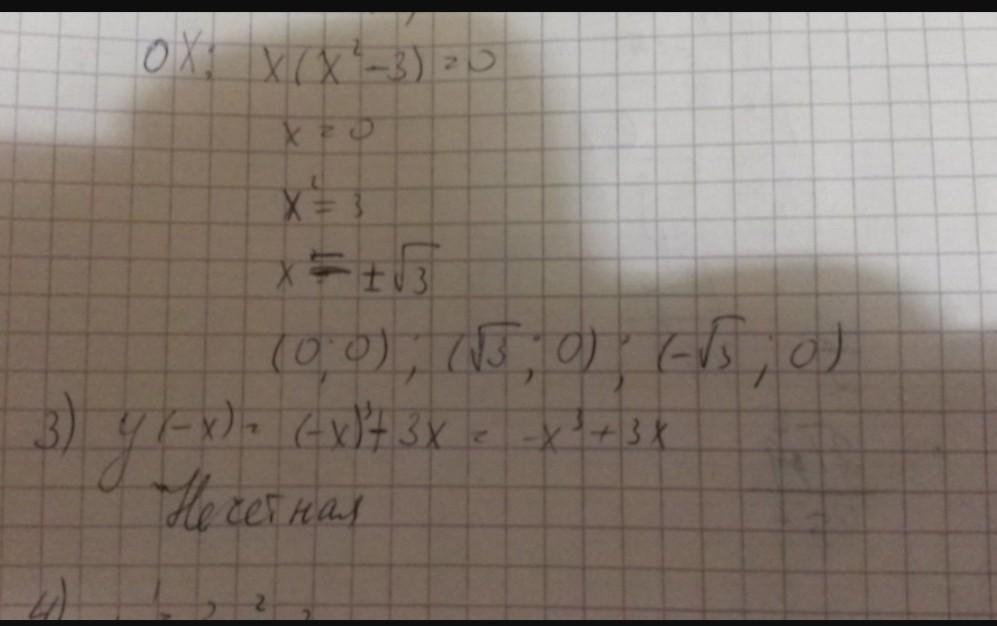 OX: x(x²-3)=0
x=0
x²=3
x=±√3
(0;0); (√3;0); (-√3;0)
3) y(-x)= (-x)³+3x = -x³+3x
Нечетная
4)